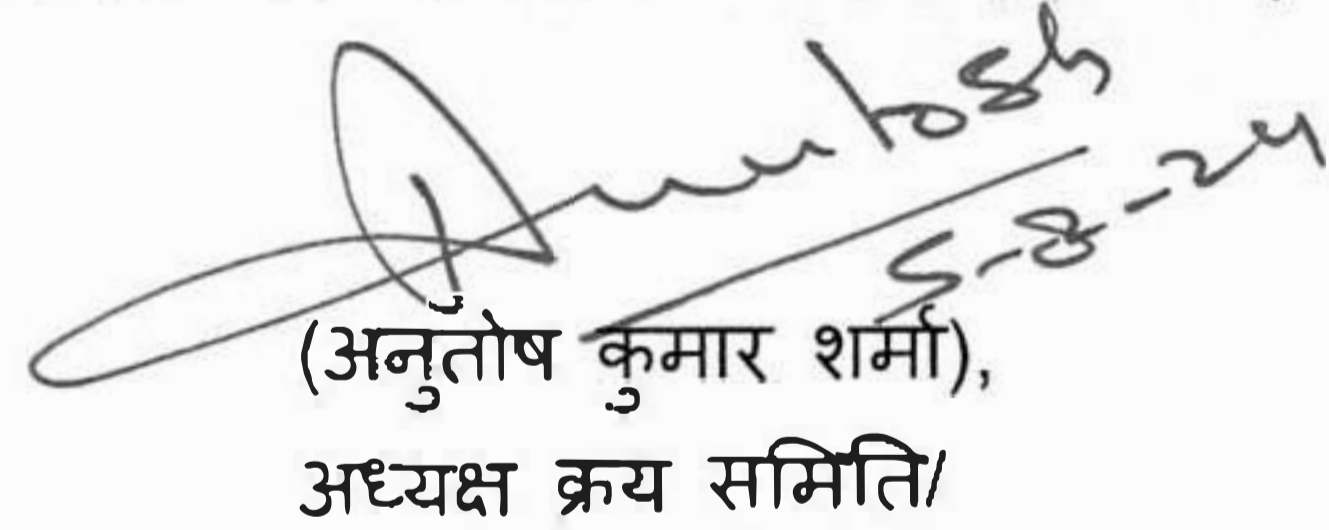 Anutosh
5-8-24
(अनुतोष कुमार शर्मा),
अध्यक्ष क्रय समिति/